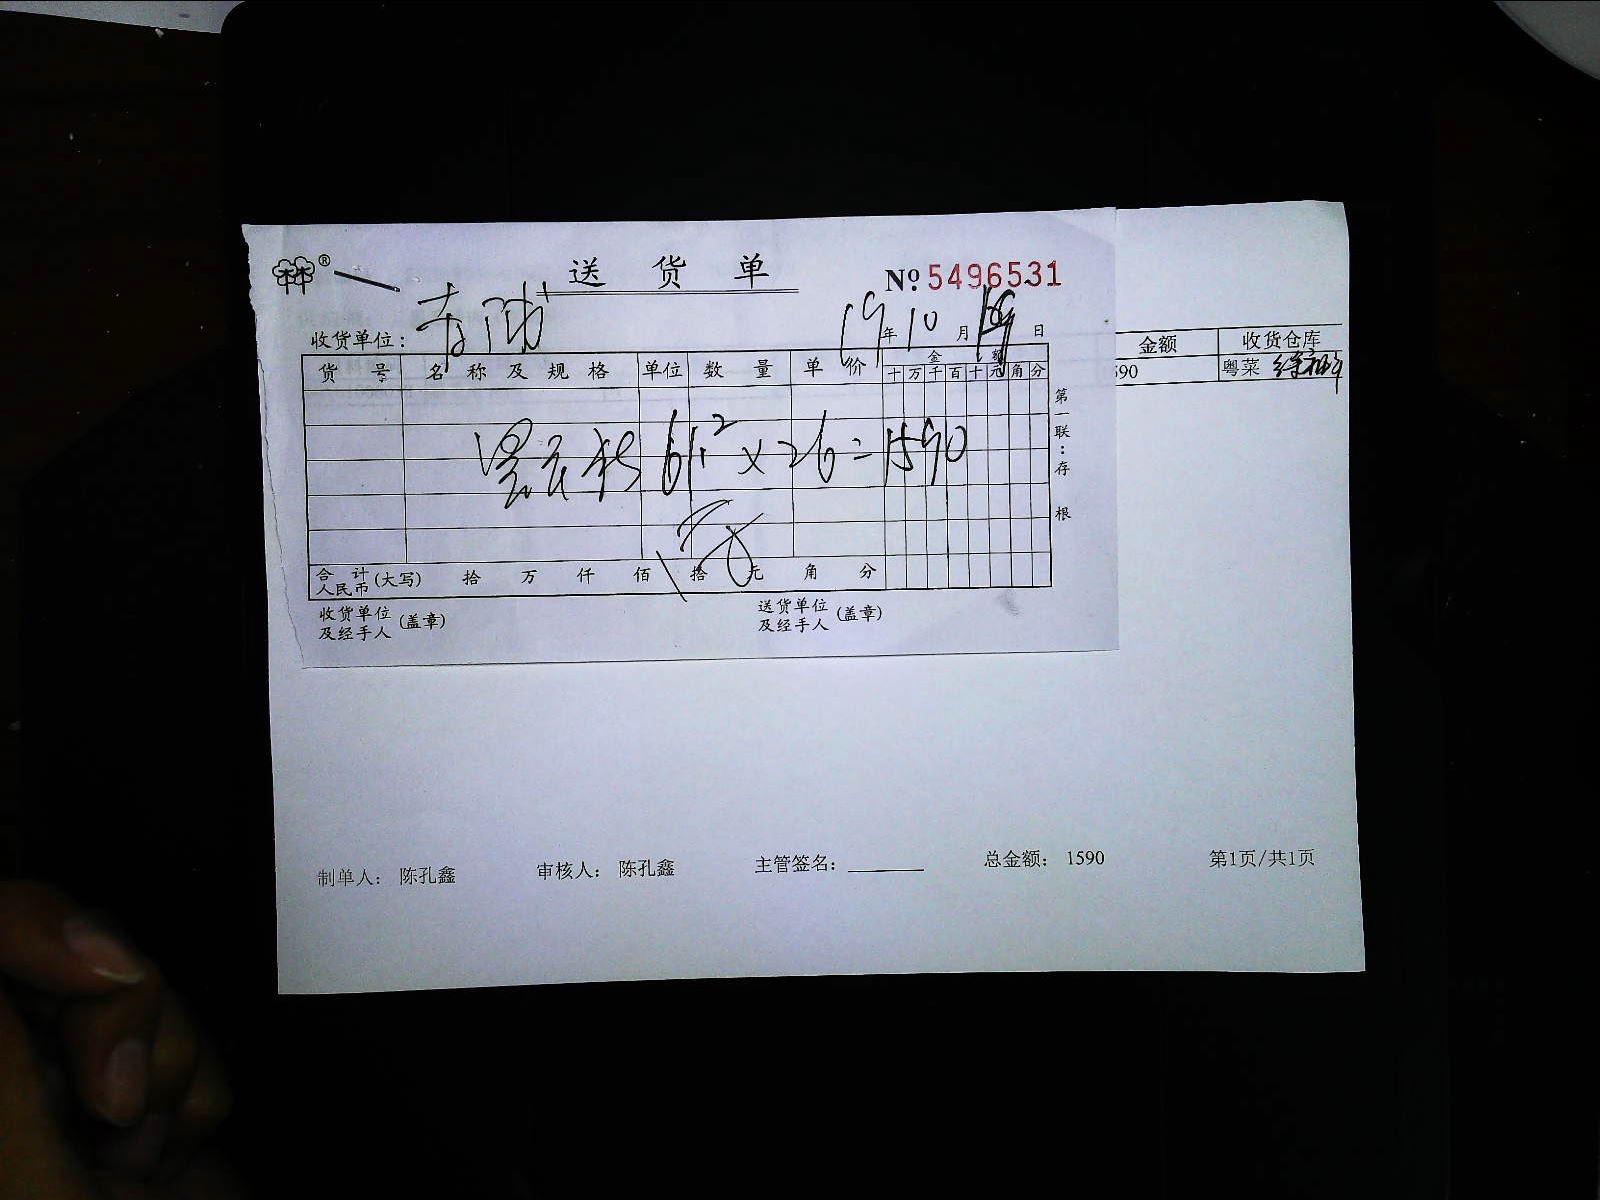 林林® 送货单 № 5496531
收货单位： 19年10月19日
货号 名称及规格 单位 数量 单价 金额
十万千百十元角分
61.2 x 26 = 1590
合计人民币(大写) 拾 万 仟 佰 拾 元 角 分
收货单位及经手人(盖章) 送货单位及经手人(盖章)
第一联：存根
金额 收货仓库
590 粤菜
制单人： 陈孔鑫 审核人： 陈孔鑫 主管签名： 总金额： 1590 第1页/共1页